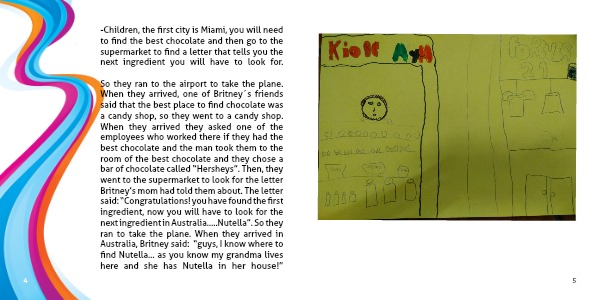 -Children, the first city is Miami, you will need
to find the best chocolate and then go to the
supermarket to find a letter that tells you the
next ingredient you will have to look for.
So they ran to the airport to take the plane.
When they arrived, one of Britney´s friends
said that the best place to find chocolate was
a candy shop, so they went to a candy shop.
When they arrived they asked one of the
employees who worked there if they had the
best chocolate and the man took them to the
room of the best chocolate and they chose a
bar of chocolate called "Hersheys". Then, they
went to the supermarket to look for the letter
Britney's mom had told them about. The letter
said: "Congratulations! you have found the first
ingredient, now you will have to look for the
next ingredient in Australia.....Nutella". So they
ran to take the plane. When they arrived in
Australia, Britney said: "guys, I know where to
find Nutella... as you know my grandma lives
here and she has Nutella in her house!"
4
21
5